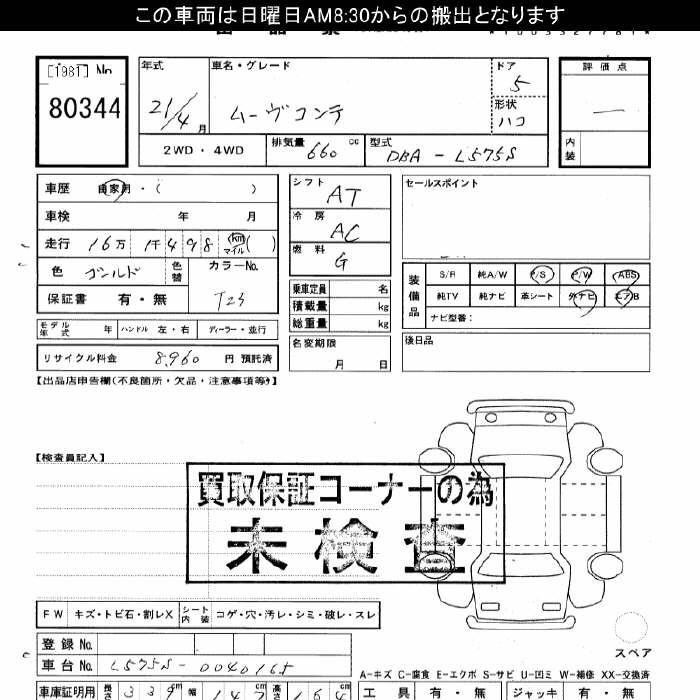 この車両は日曜日AM8:30からの搬出となります
[1981] No
80344
年式 車名・グレード ドア 評価点
21/4 月 ムーヴコンテ 5
形状 ハコ
2WD・4WD 排気量 660 cc 型式 DBA - L575S 内装
車歴 自家用・( )
車検 年 月
走行 16万 1千498 km マイル ( )
色 ゴールド 色替 カラーNo.
保証書 有・無 T23
モデル年式 年 ハンドル 左・右 ディーラー・並行
リサイクル料金 8,960 円 預託済
シフト AT
冷房 AC
燃料 G
乗車定員 名
積載量 kg
総重量 kg
名変期限
月 日
セールスポイント
装備品 S/R 純A/W P/S P/W ABS
純TV 純ナビ 革シート 外ナビ エアB
ナビ型番:
後日品
【出品店申告欄(不良箇所・欠品・注意事項等)】
【検査員記入】
買取保証コーナーの為
未検査
FW キズ・トビ石・割レX シート内装 コゲ・穴・汚レ・シミ・破レ・スレ
登録No.
車台No. L575S-0040165
スペア
A-キズ C-腐食 E-エクボ S-サビ U-凹ミ W-補修 XX-交換済
車庫証明用 長さ 339 cm 幅 147 高さ 164 cm 工具 有・無 ジャッキ 有・無